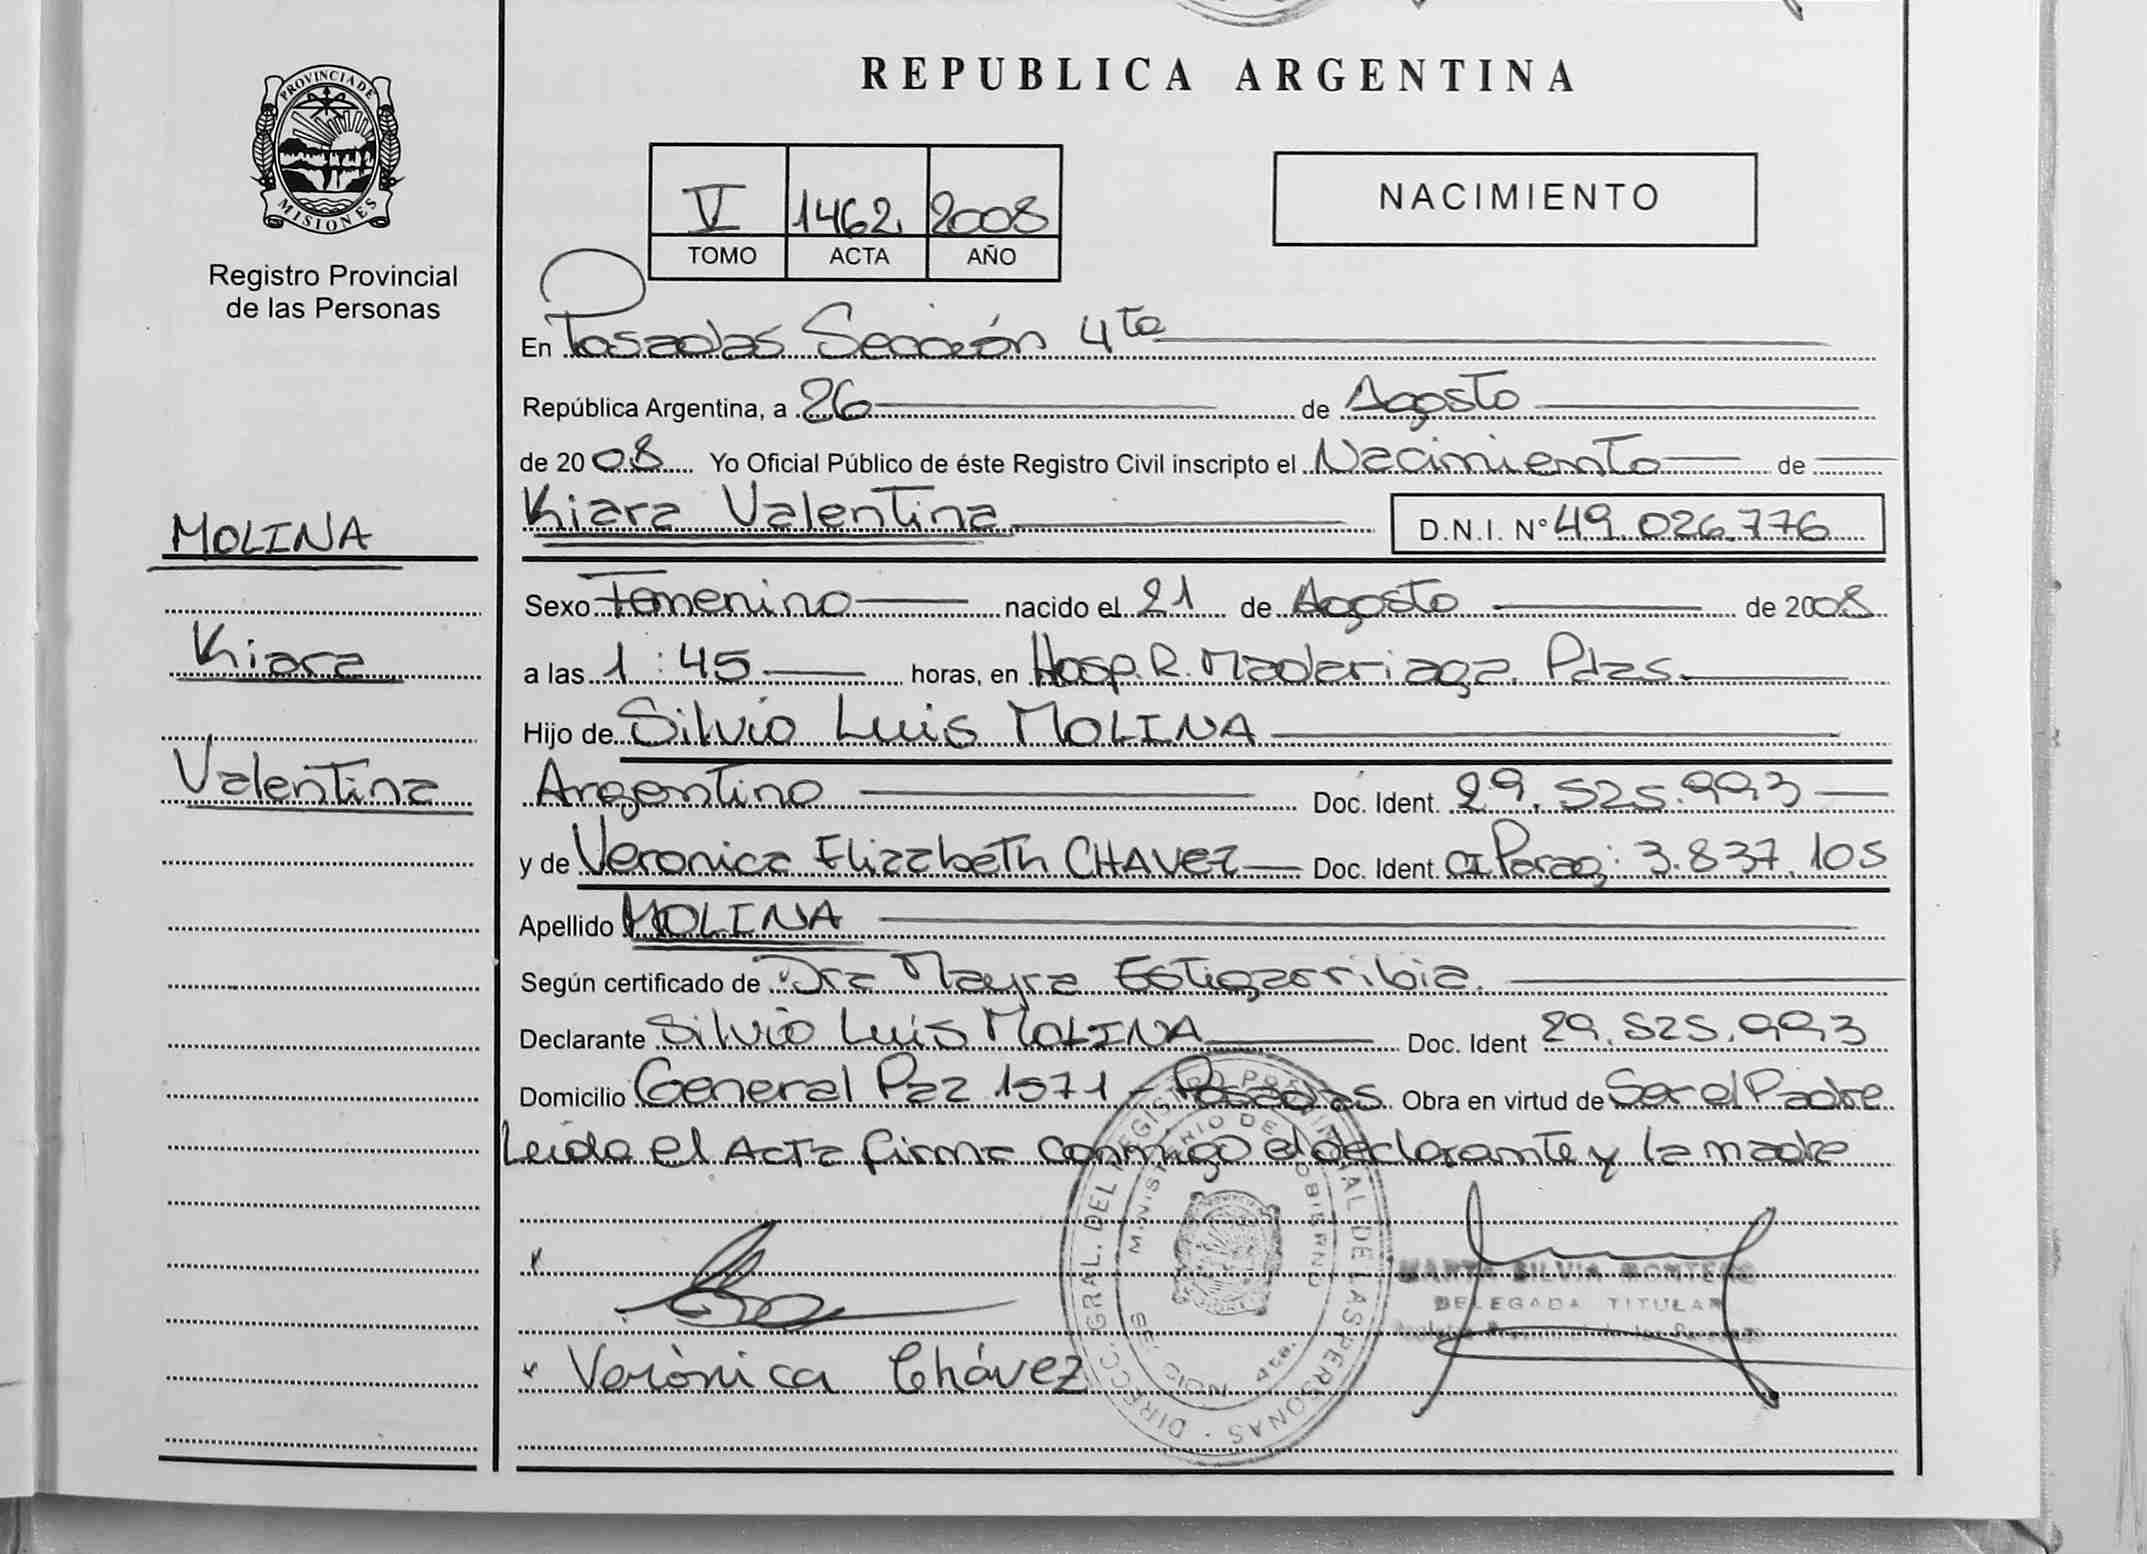 REPUBLICA ARGENTINA
PROVINCIA DE
MISIONES
Registro Provincial
de las Personas
V 1462 2008
TOMO ACTA AÑO
NACIMIENTO
En Posadas Sección 4ta
República Argentina, a 26 de Agosto
de 2008 Yo Oficial Público de éste Registro Civil inscripto el Nacimiento de
Kiara Valentina D.N.I. N° 49.026.776
MOLINA
Kiara
Valentina
Sexo Femenino nacido el 21 de Agosto de 2008
a las 1:45 horas, en Hosp. R. Madariaga. Pdas.
Hijo de Silvio Luis MOLINA
Argentino Doc. Ident. 29.525.993
y de Veronica Elizabeth CHAVEZ Doc. Ident. CI Parag: 3.837.105
Apellido MOLINA
Según certificado de Dra Mayra Estigarribia.
Declarante Silvio Luis MOLINA Doc. Ident 29.525.993
Domicilio General Paz 1571 - Posadas Obra en virtud de Ser el Padre
Leida el Acta firma conmigo el declarante y la madre
MARTA SILVIA MONTERO
DELEGADA TITULAR
Registro Provincial de las Personas
Verónica Chávez
DIRECC. GRAL. DEL REGISTRO PROVINCIAL DE LAS PERSONAS
MINISTERIO DE GOBIERNO